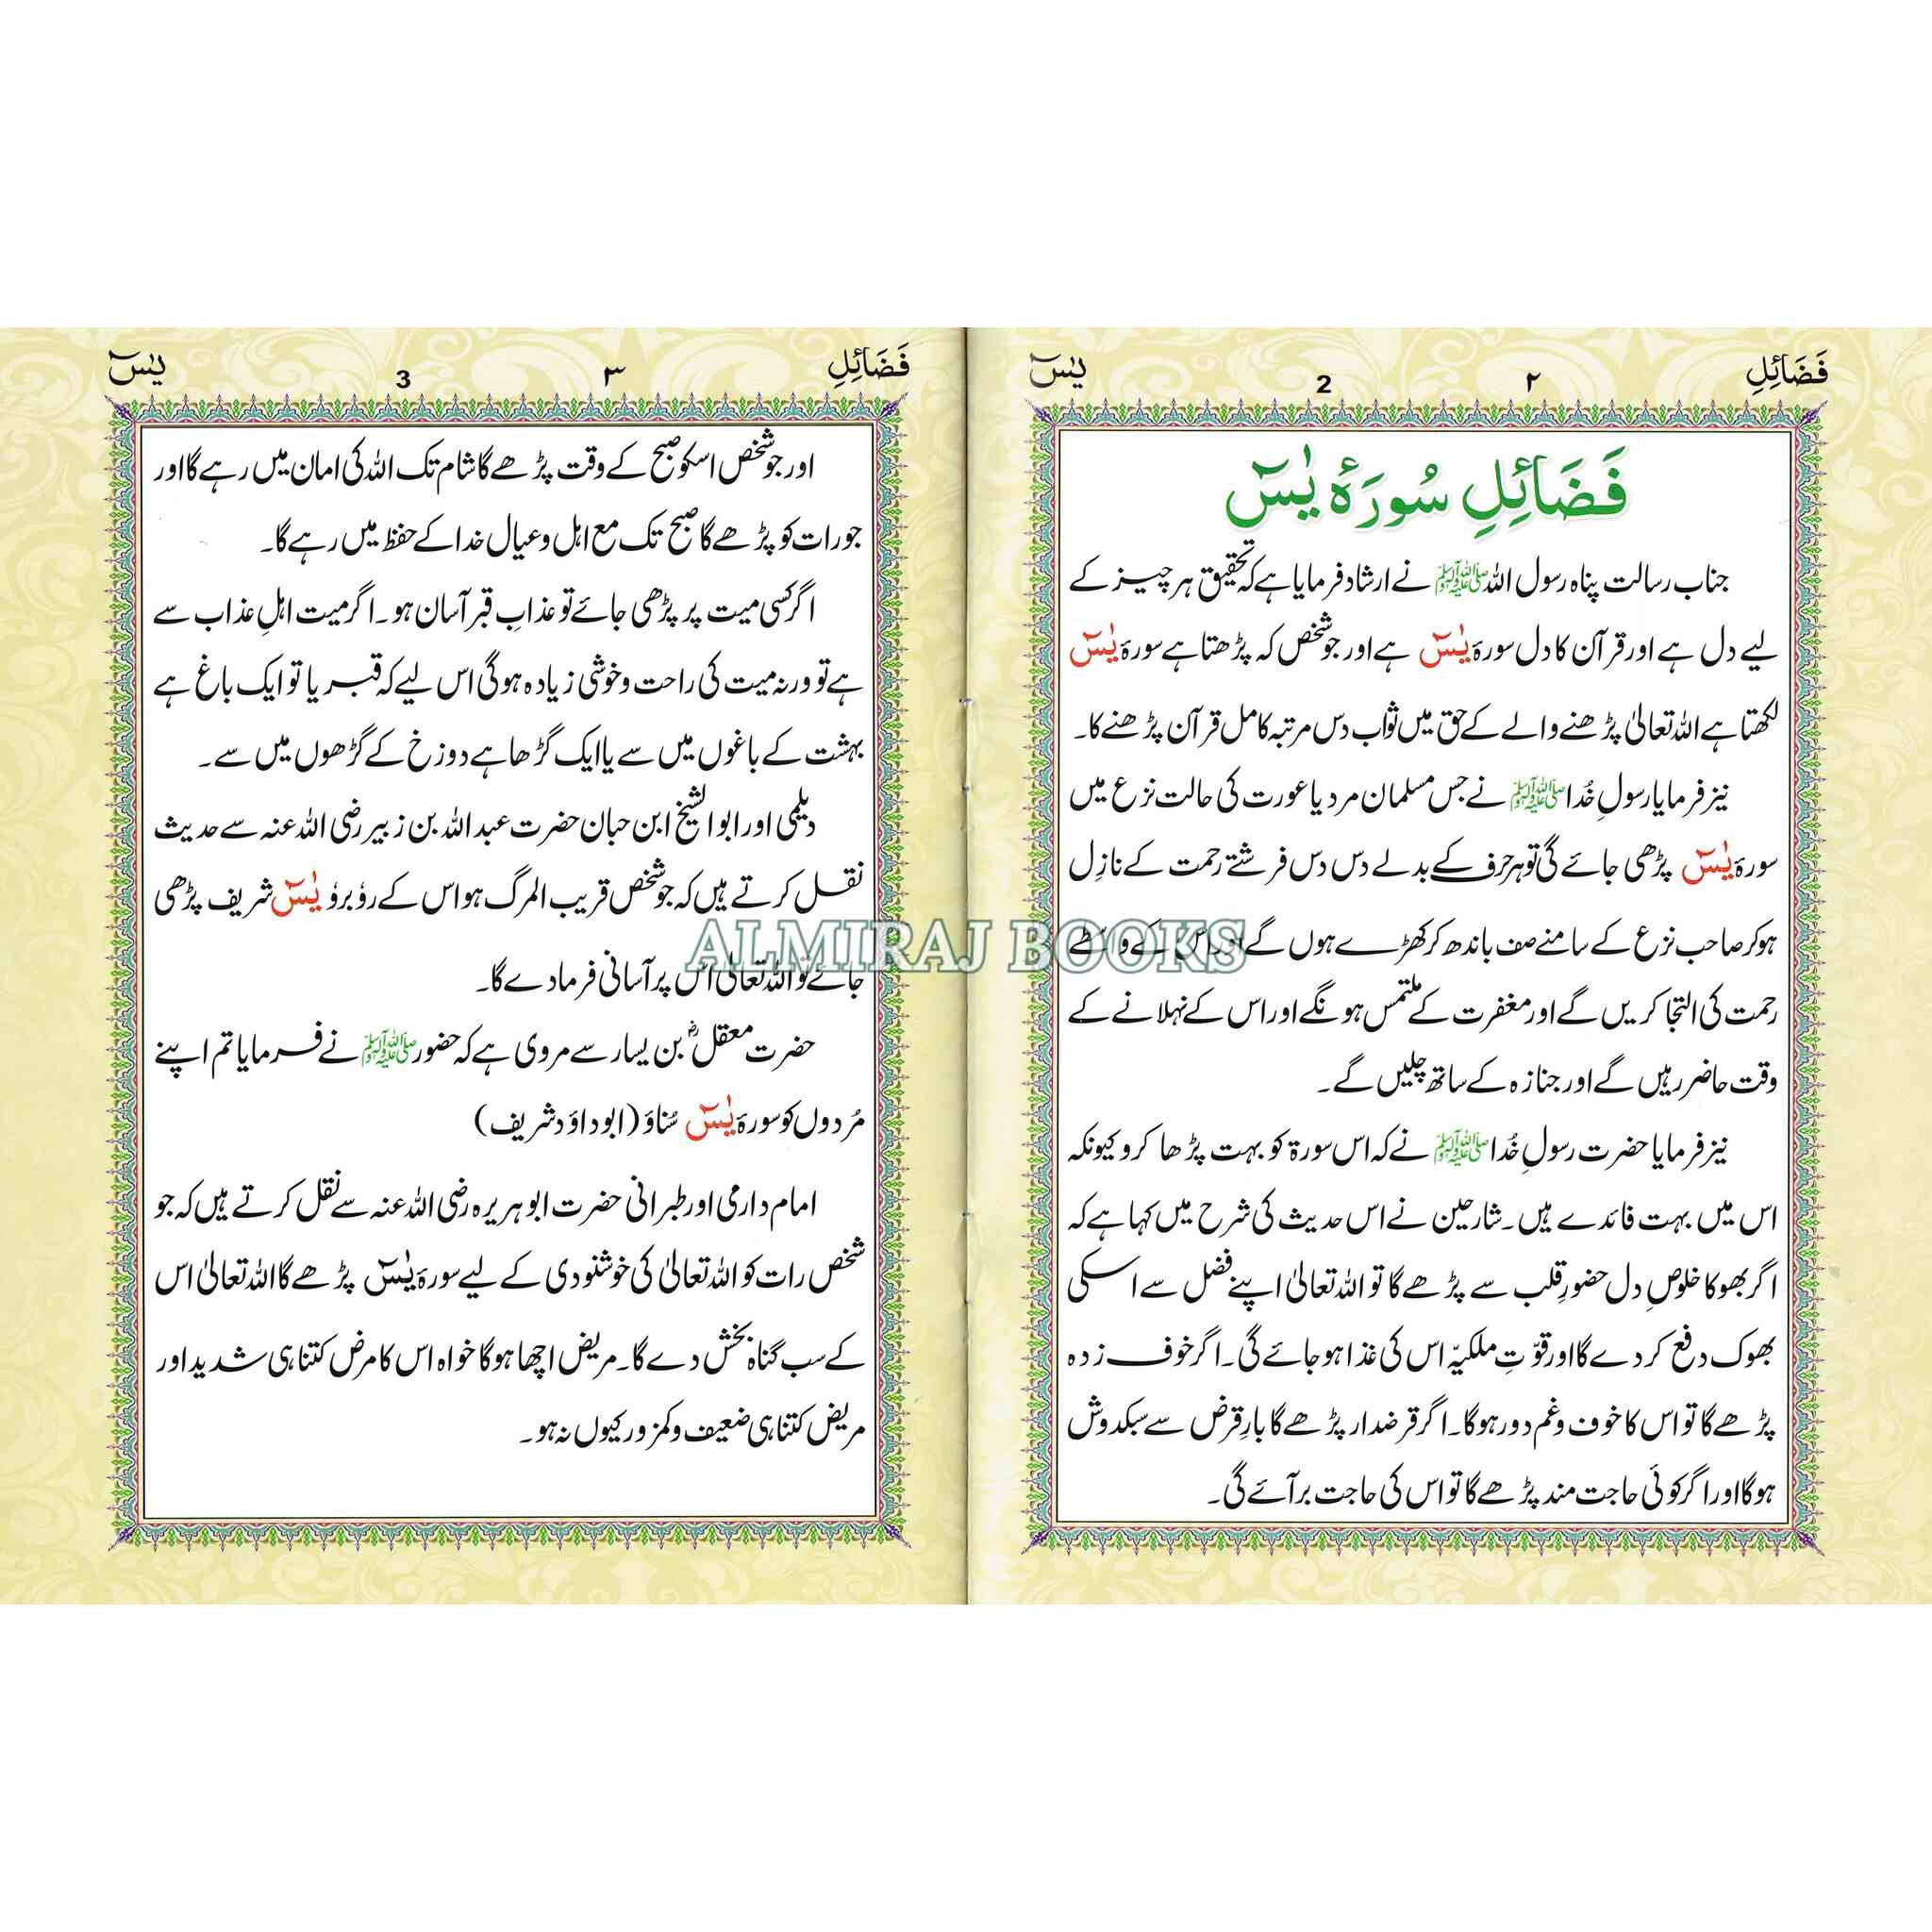 فَضَائِلِ ۲ 2 یٰسٓ
فَضَائِلِ سُورَۂ یٰسٓ
جناب رسالت پناہ رسول اللہ ﷺ نے ارشاد فرمایا ہے کہ تحقیق ہر چیز کے
لیے دل ہے اور قرآن کا دل سورۂ یٰسٓ ہے اور جو شخص کہ پڑھتا ہے سورۂ یٰسٓ
لکھتا ہے اللہ تعالیٰ پڑھنے والے کے حق میں ثواب دس مرتبہ کامل قرآن پڑھنے کا۔
نیز فرمایا رسولِ خُدا ﷺ نے جس مسلمان مرد یا عورت کی حالت نزع میں
سورۂ یٰسٓ پڑھی جائے گی تو ہر حرف کے بدلے دس دس فرشتے رحمت کے نازِل
ہو کر صاحب نزع کے سامنے صف باندھ کر کھڑے ہوں گے اور اس کے واسطے
رحمت کی التجا کریں گے اور مغفرت کے ملتمس ہونگے اور اس کے نہلانے کے
وقت حاضر رہیں گے اور جنازہ کے ساتھ چلیں گے۔
نیز فرمایا حضرت رسولِ خُدا ﷺ نے کہ اس سورۃ کو بہت پڑھا کرو کیونکہ
اس میں بہت فائدے ہیں۔ شارحین نے اس حدیث کی شرح میں کہا ہے کہ
اگر بھوکا خلوصِ دل حضورِ قلب سے پڑھے گا تو اللہ تعالیٰ اپنے فضل سے اسکی
بھوک دفع کر دے گا اور قوّتِ ملکیہّ اس کی غذا ہو جائے گی۔ اگر خوف زدہ
پڑھے گا تو اس کا خوف و غم دور ہوگا۔ اگر قرضدار پڑھے گا بارِ قرض سے سبکدوش
ہوگا اور اگر کوئی حاجت مند پڑھے گا تو اس کی حاجت بر آئے گی۔
فَضَائِلِ ۳ 3 یٰسٓ
اور جو شخص اسکو صبح کے وقت پڑھے گا شام تک اللہ کی امان میں رہے گا اور
جو رات کو پڑھے گا صبح تک مع اہل و عیال خدا کے حفظ میں رہے گا۔
اگر کسی میت پر پڑھی جائے تو عذابِ قبر آسان ہو۔ اگر میت اہلِ عذاب سے
ہے تو ورنہ میت کی راحت و خوشی زیادہ ہوگی اس لیے کہ قبر یا تو ایک باغ ہے
بہشت کے باغوں میں سے یا ایک گڑھا ہے دوزخ کے گڑھوں میں سے۔
دیلمی اور ابوالشیخ ابن حبان حضرت عبداللہ بن زبیر رضی اللہ عنہ سے حدیث
نقل کرتے ہیں کہ جو شخص قریب المرگ ہو اس کے رُوبرو یٰسٓ شریف پڑھی
جائے تو اللہ تعالیٰ اس پر آسانی فرما دے گا۔
حضرت معقلؓ بن یسار سے مروی ہے کہ حضور ﷺ نے فرمایا تم اپنے
مُردوں کو سورۂ یٰسٓ سُناؤ (ابوداؤد شریف)
امام دارمی اور طبرانی حضرت ابوہریرہ رضی اللہ عنہ سے نقل کرتے ہیں کہ جو
شخص رات کو اللہ تعالیٰ کی خوشنودی کے لیے سورۂ یٰسٓ پڑھے گا اللہ تعالیٰ اس
کے سب گناہ بخش دے گا۔ مریض اچھا ہوگا خواہ اس کا مرض کتنا ہی شدید اور
مریض کتنا ہی ضعیف و کمزور کیوں نہ ہو۔
ALMIRAJ BOOKS